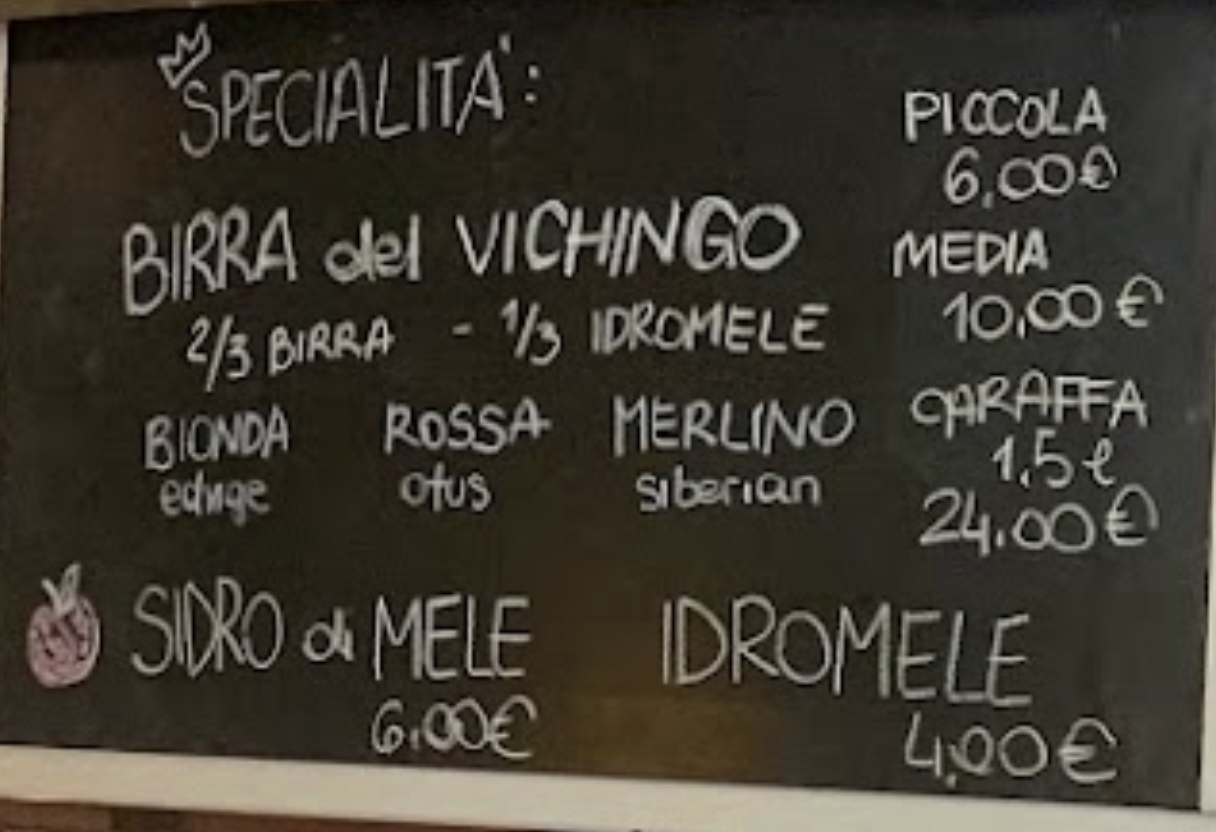 SPECIALITA':
PICCOLA
6,00€
BIRRA del VICHINGO
MEDIA
10,00€
2/3 BIRRA - 1/3 IDROMELE
BIONDA ROSSA MERLINO
edvige otus siberian
CARAFFA
1,5 l
24,00€
SIDRO di MELE
6,00€
IDROMELE
4,00€